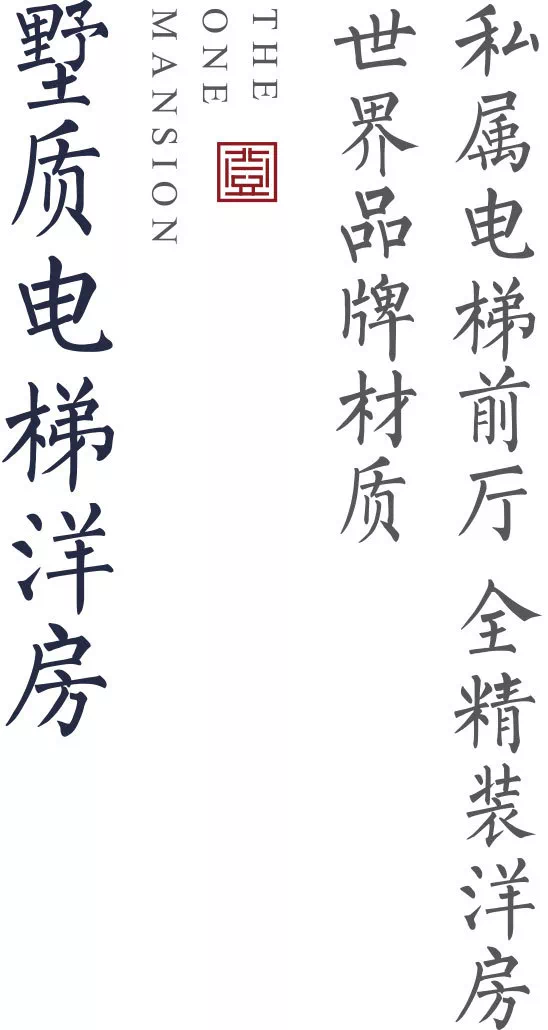 私属电梯前厅 全精装洋房
世界品牌材质
THE
ONE
MANSION
墅质电梯洋房